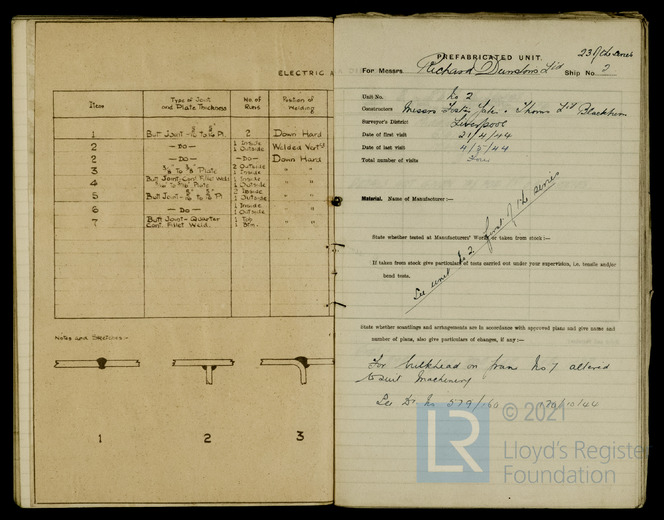 ELECTRIC A
Item
Type of Joint and Plate Thickness
No. of Runs
Position of Welding
1
Butt Joint
2
Down Hand
2
— DO —
1 Inside
1 Outside
Welded Vert'l
2
— DO —
— DO —
Down Hand
3
Plate
2 Outside
1 Inside
" "
4
Butt Joint-Cont Fillet Weld
Plate
1 Inside
1 Outside
" "
5
Butt Joint
1 Inside
1 Outside
" "
6
— DO —
1 Inside
1 Outside
" "
7
Butt Joint - Quarter
Cont. Fillet Weld.
1 Top
1 Btm.
" "
Notes and Sketches:-
1
2
3
PREFABRICATED UNIT.
23 of the series
For Messrs. Richard Dunstons Ltd Ship No. 2
Unit No. No 2
Constructors Messrs Foster Yates & Thoms Ltd Blackburn
Surveyor's District Liverpool
Date of first visit 21/4/44
Date of last visit 4/5/44
Total number of visits Four
Material. Name of Manufacturer :—
State whether tested at Manufacturers' Works or taken from stock :—
If taken from stock give particulars of tests carried out under your supervision, i.e. tensile and/or
bend tests.
See unit No 2 first of the series
State whether scantlings and arrangements are in accordance with approved plans and give name and
number of plans, also give particulars of changes, if any :—
For bulkhead on fram No 7 altered
to suit Machinery
See Dr No 579/160
LR
© 2021
Lloyd's Register
Foundation